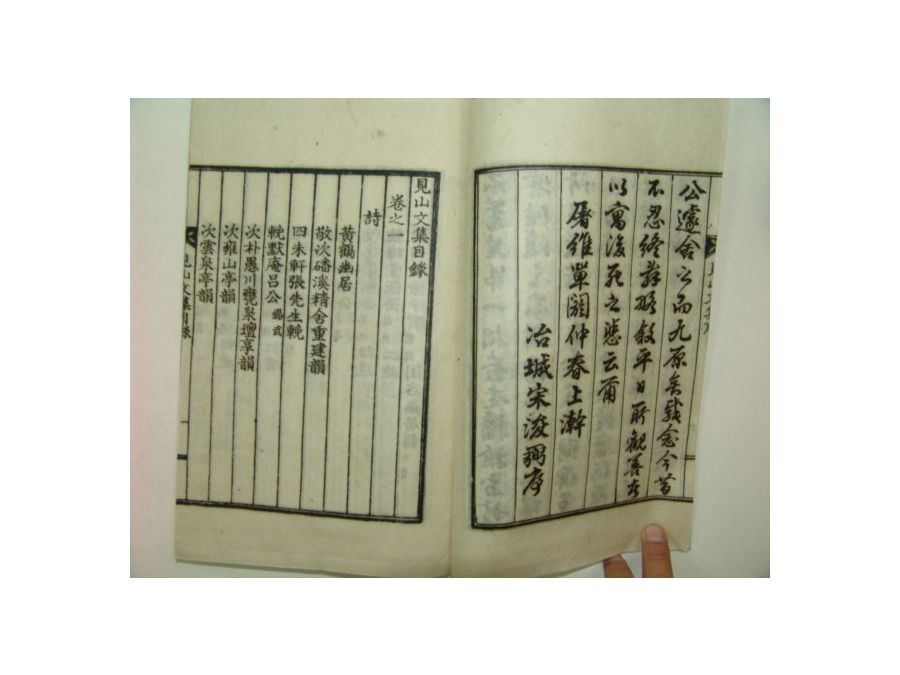 公遽舍公而九原矣哉念今昔
不忍終辭略敍平日所觀善者
以寓後死之悲云爾
屠維單閼仲春上澣
冶城宋浚弼序
見山文集目錄
卷之一
詩
黃鶴幽居
敬次磻溪精舍重建韻
四未軒張先生輓
輓默庵呂公錫武
次朴愚川 泉壇享韻
次雍山亭韻
次雲泉亭韻
見山文集目錄
一